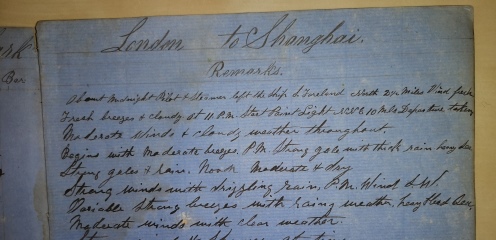 London to Shanghai.
Remarks.
About Midnight Pilot & Steamer left the Ship. S Foreland North 2½ Miles Wind fresh
Fresh breezes & cloudy at 11 P.M. Start Point Light NNE 10 Mls Departure taken
Moderate winds & cloudy weather throughout.
Begins with Moderate breezes, P.M. Strong gale with thick rain heavy
Strong gales & rain. Noon Moderate & dry
Strong winds with drizzling rain, P.M. Wind
Variable strong breezes with raing weather, heavy Head Sea,
Moderate winds with clear weather.